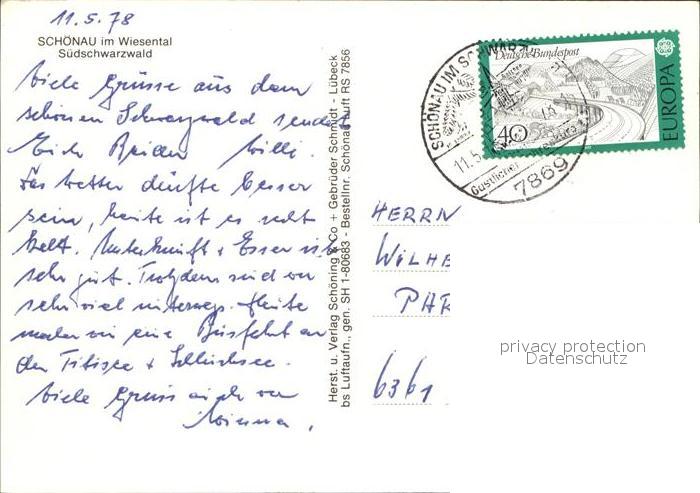 11.5.78
SCHÖNAU im Wiesental
Südschwarzwald
Viele Grüsse aus dem
schönen Schwarzwald sendet
Euch Beiden Willi.
Das Wetter dürfte besser
sein, heute ist es recht
kalt. Unterkunft + Essen ist
sehr gut. Trotzdem sind wir
sehr viel unterwegs. Heute
machen wir eine Busfahrt an
den Titisee + Schluchsee.
Viele Grüsse auch von
Herst. u. Verlag Schöning & Co + Gebrüder Schmidt - Lübeck
bs Luftaufn., gen. SH 1-80683 - Bestellnr. Schönau Luft RS 7856
Deutsche Bundespost
40
EUROPA
SCHÖNAU IM SCHWARZW
11.5.
7869
HERRN
WILHE
PAR
6361
privacy protection
Datenschutz